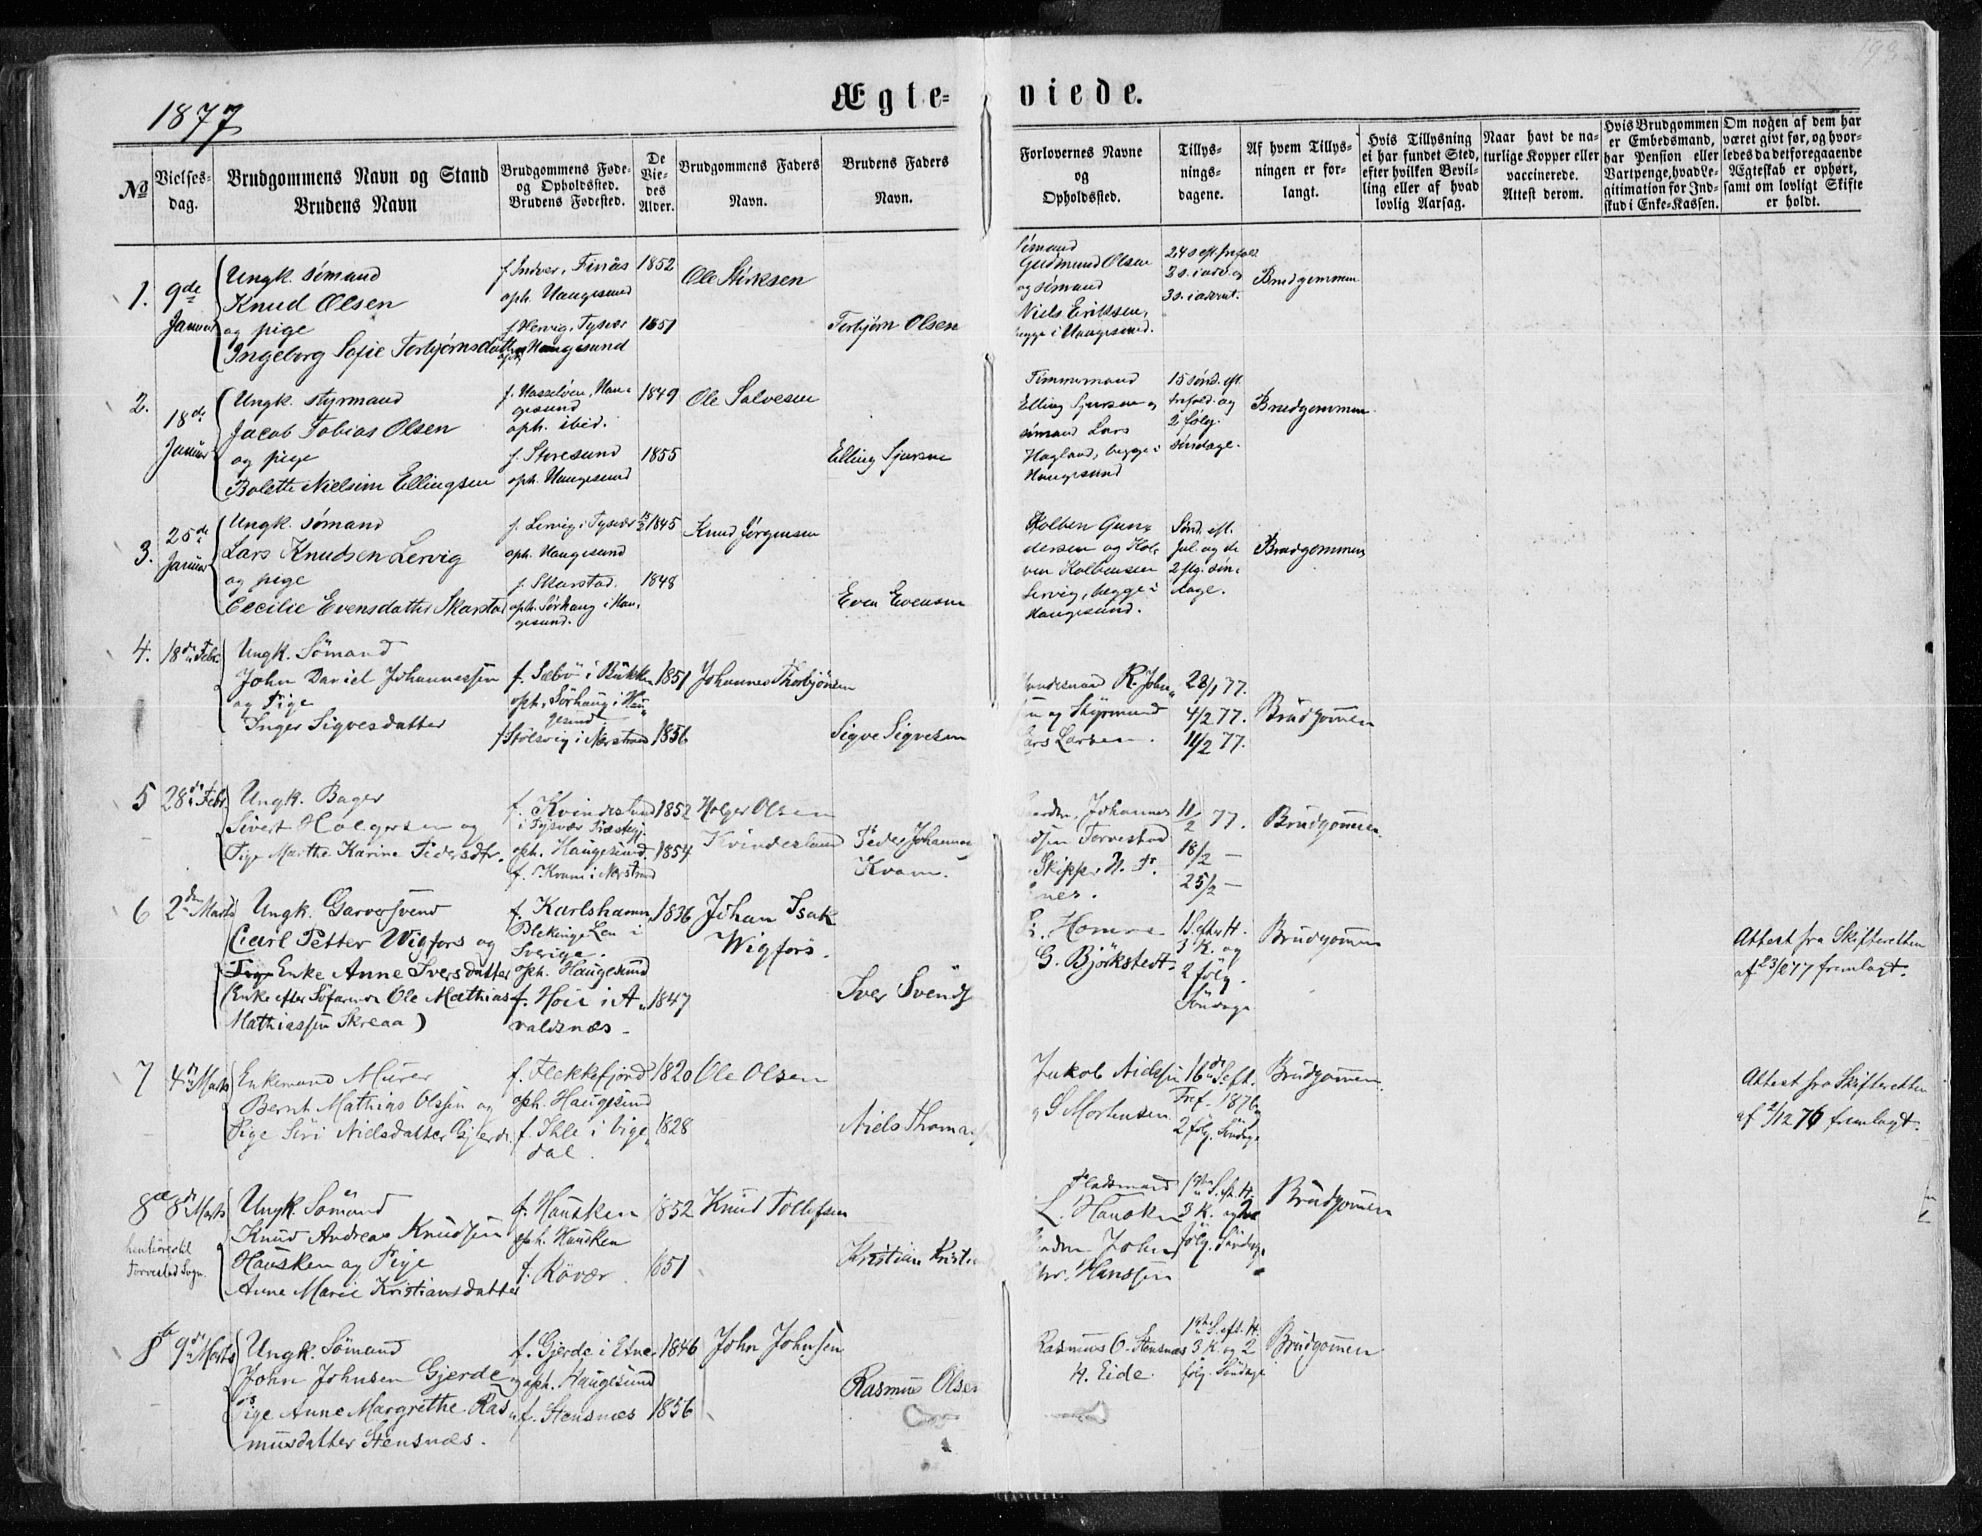 193
1877
Ægte-
viede.
No
Vielses-
dag.
Brudgommens Navn og Stand
Brudens Navn
Brudgommens Føde-
og Opholdssted.
Brudens Fødested.
De
Vie-
des
Alder.
Brudgommens Faders
Navn.
Brudens Faders
Navn.
Forlovernes Navne
og
Opholdssted.
Tillys-
nings-
dagene.
Af hvem Tillys-
ningen er for-
langt.
Hvis Tillysning
ei har fundet Sted,
efter hvilken Bevil-
ling eller af hvad
lovlig Aarsag.
Naar havt de na-
turlige Kopper eller
vaccinerede.
Attest derom.
Hvis Brudgommen
er Embedsmand,
har Pension eller
Vartpenge, hvad Le-
gitimation for Ind-
skud i Enke-Kassen.
Om nogen af dem har
været givt før, og hvor-
ledes da det foregaaende
Ægteskab er ophørt,
samt om lovligt Skifte
er holdt.
1.
9de
Januar
Ungk. sømand
Knud Olsen
og pige
Ingeborg Sofie Torbjørnsdatter
f. Indver, Finås
oph. Haugesund
f. Hervig, Tysvær
oph. Haugesund
1852
1851
Ole Størksen
Torbjørn Olsen
Sømand
Gudmund Olsen
og sømand
Niels Eriksen,
begge i Haugesund.
24 s. eft. trefold.
3 s. i adv. og
3 s. i advent.
Brudgommen
2.
18de
Januar
Ungk. styrmand
Jacob Tobias Olsen
og pige
Bolette Nielsine Ellingsen
f. Hasseløen, Hau-
gesund
oph. ibid.
f. Storesund
oph. Haugesund
1849
1855
Ole Salvesen
Elling Sjursen
Tømmermand
Elling Sjursen og
sømand Lars
Hagland, begge i
Haugesund
15 sønd. eft.
trefold. og
2 følg.
søndage.
Brudgommen
3.
25de
Januar
Ungk. sømand
Lars Knudsen Lervig
og pige
Cecilie Evensdatter Skarstad
f. Lervig i Tysvær
oph. Haugesund
f. Skarstad.
oph. Sørhaug i Hau-
gesund.
1845
1848
Knud Jørgensen
Even Evensen
Kolben Gun-
dersen og Kol-
ben Kolbensen
Lervig, begge i
Haugesund.
Sønd. eft.
Jul og de
2 flg. søn-
dage.
Brudgommen
4.
18de Febr.
Ungk. Sømand
John Daniel Johannessen
og Pige
Inger Sigvesdatter
f. Sæbø i Bukken
oph. Sørhaug i Hau-
gesund
f. Stølsvig i Nerstrand
1851
1856
Johannes Thorbjørnsen
Sigve Sigvesen
R. John-
og Styrmand
Lars Larsen.
28/1 77.
4/2 77.
11/2 77.
Brudgommen
5
28de Febr.
Ungk. Bager
Sivert Holgersen og
Pige Marthe Karine Pedersdtr.
f. Kvindesland
i Tysvær Præstegj.
oph. Haugesund.
f. Kvam i Nerstrand
1852
1854
Holger Olsen
Kvindesland
Peder Johannes
Kvam.
Johannes
Torvestad
Skipper N. P.
nes.
11/2 77.
18/2 —
25/2 —
Brudgommen.
6
2den Marts
Ungk. Garversvend
Carl Petter Wigfors og
Enke Anne Iversdatter
(Enke efter Søfarmer Ole Mathias
Mathiassen Skreaa)
f. Karlshamn,
Blekinge Len i
Sverige.
oph. Haugesund
f. Høie i A-
valdsnæs.
1836
1847
Johan Isak
Wigfors.
Iver Svends
Homme
G. Björkstedt.
1 S. efter H.
3 K. og
2 følg.
Søndage
Brudgommen
Attest fra Skifteretten
af 23/2 77 fremlagt.
7
4de Marts
Enkemand Murer
Bernt Mathias Olssen og
Pige Siri Nielsdatter Gjerde
f. Flekkefjord
oph. Haugesund
f. Ihle i Vige-
dal.
1820
1828
Ole Olsen
Niels Thomas
Jakob Nielsen
og S Mortensen
16de S. eft.
Tref. 1876 og
2 følg. Søndage
Brudgommen.
Attest fra Skifteretten
af 2/12 76 fremlagt.
8a
8de Marts
henhører til
Torvestad Sogn.
Ungk Sømand
Knud Andreas Knudsen
Hausken og Pige
Anne Marie Kristiansdatter
f. Hausken
oph. Hausken
f. Røvær
1852
1851
Knud Tollefsen
Kristian Kristen
Pladsmand
L. Hausken
John
Chr. Hanssen
1ste S. eft. H.
3 K. og 2
følg. Søndage
Brudgommen
8b
9de Marts
Ungk. Sømand
John Johnsen Gjerde og
Pige Anne Margrethe Ras-
musdatter Stensnæs.
f. Gjerde i Etne
oph. Haugesund
f. Stensnæs
1846
1856
John Johnsen
Rasmus Olsen
Rasmus O. Stensnæs
H. Eide.
1ste S. eft. H.
3 K. og 2
følg. Søndage
Brudgommen